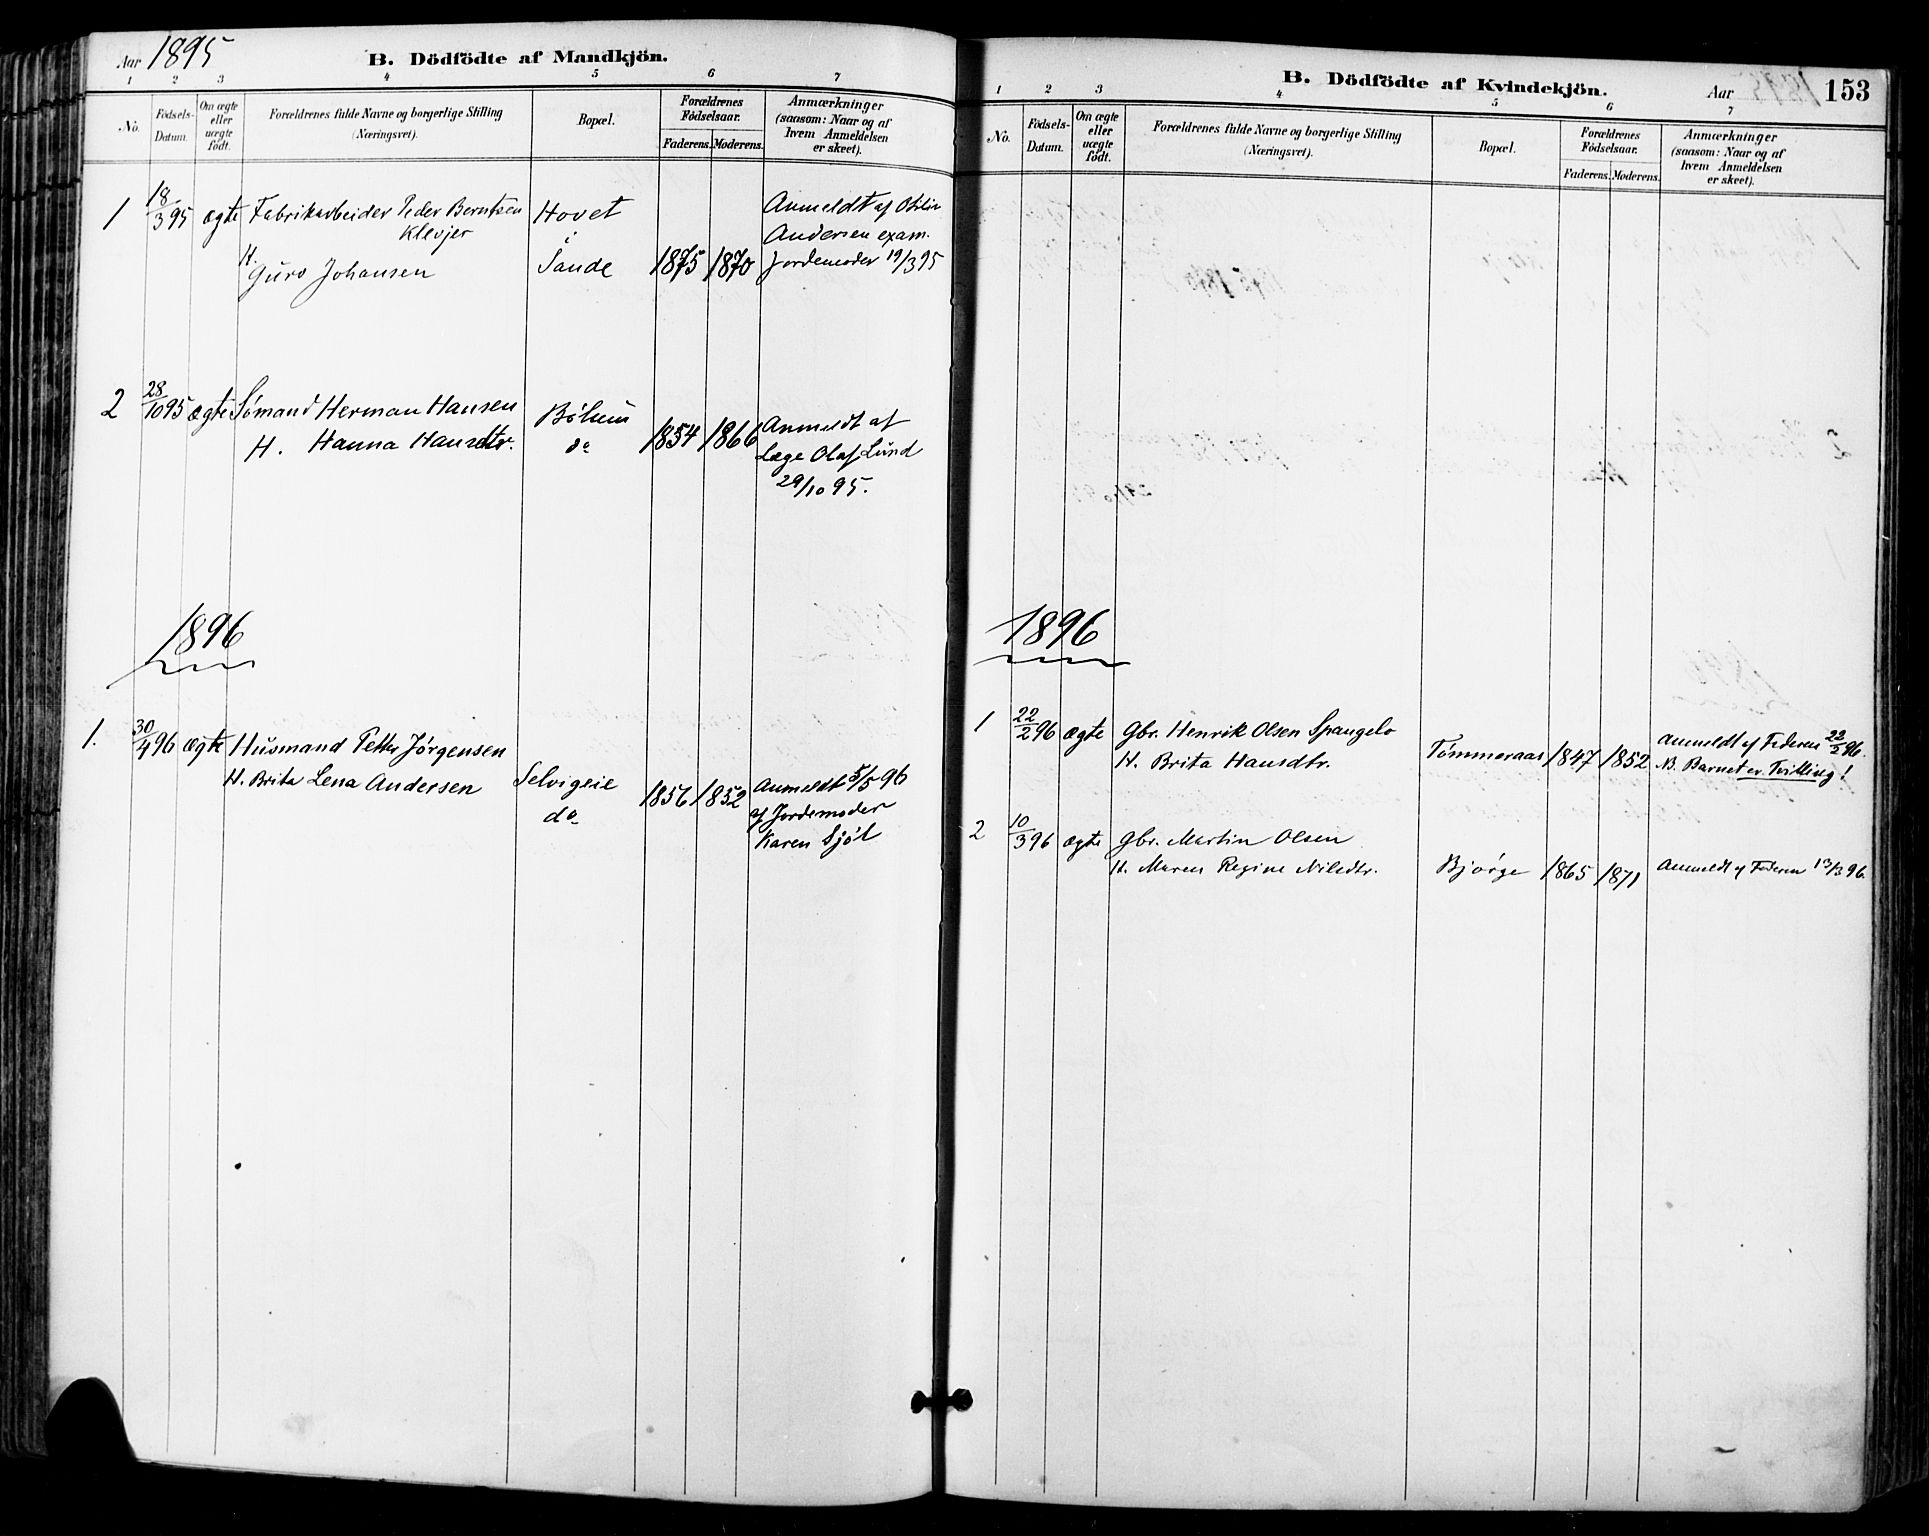 Aar 1895
B. Dödfödte af Mandkjön.
1 2 3 4 5 6 7
No.
Födsels-
Datum.
Om ægte
eller
uægte
født.
Forældrenes fulde Navne og borgerlige Stilling
(Næringsvei).
Bopæl.
Forældrenes
Födselsaar.
Faderens. Moderens.
Anmærkninger
(saasom: Naar og af
hvem Anmeldelsen
er skeet).
1 18/3 95 ægte Fabrikarbeider Peder Berntsen Hovet Anmeldt af
Klevjer i Andersen exam.
H. Guro Johansen Sande 1875 1870 Jordemoder 19/3 95
2 28/10 95 ægte Sømand Herman Hansen
H. Hanna Hansdtr. do 1854 1866 Anmeldt af
Læge Olaf Lund
29/10 95.
1896
1. 30/4 96 ægte Husmand Petter Jørgensen
H. Brita Lena Andersen Selvigeie 1856 1852 Anmeldt 5/5 96
do af Jordemoder
Karen Sjøl
B. Dödfödte af Kvindekjön.
Aar 1895 153
1 2 3 4 5 6 7
No.
Födsels-
Datum.
Om ægte
eller
uægte
født.
Forældrenes fulde Navne og borgerlige Stilling
(Næringsvei).
Bopæl.
Forældrenes
Födselsaar.
Faderens. Moderens.
Anmærkninger
(saasom: Naar og af
hvem Anmeldelsen
er skeet).
1896
1 22/2 96 ægte Gbr. Henrik Olsen Spangelo Anmeldt af Faderen 22/2 96.
H. Brita Hansdtr. Tømmeraas 1847 1852 N. Barnet er Tvilling!
2 10/3 96 ægte Gbr. Martin Olsen
H. Maren Regine Nilsdtr. Bjørge 1865 1871 Anmeldt af Faderen 13/3 96.